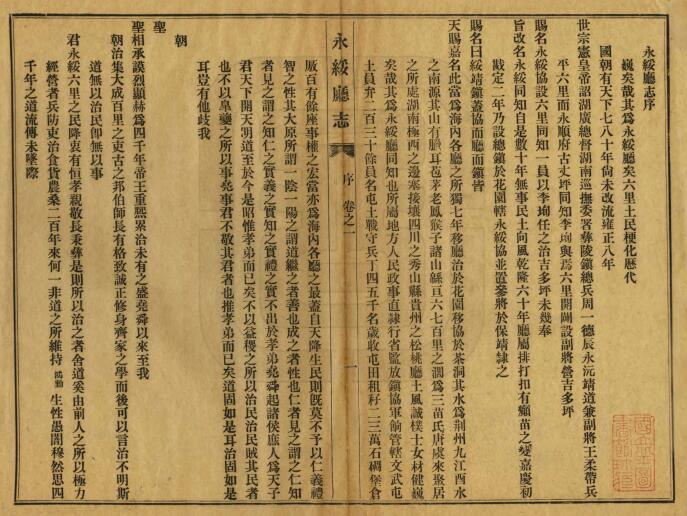 永綏廳志序
巍矣哉其爲永綏廳矣六里土民梗化歷代
國朝有天下七八十年尙未改流雍正八年
世宗憲皇帝詔湖廣總督湖南巡撫委署彝陵鎭總兵周一德辰永沅靖道兼副將王柔帶兵
平六里而永順府古丈坪同知李珣與焉六里開闢設副將營吉多坪
賜名永綏協設六里同知一員以李珣任之治吉多坪未幾奉
旨改名永綏同知自是數十年無事民土向風乾隆六十年廳屬排打扣有癲苗之變嘉慶初
戡定二年乃設總鎭於花園轄永綏協並置參將於保靖隸之
賜名曰綏靖鎭蓋協而廳而鎭皆
天賜嘉名此當爲海內各廳之所獨七年移廳治於花園移協於茶洞其水爲荆州九江酉水
之南源其山有臘耳苞茅老鳳猴子諸山緜亘六七百里之濶爲三苗氏唐虞來聚居
之所處湖南極西之邊塞接壤四川之秀山縣貴州之松桃廳土風誠樸士女材健巍
矣哉其爲永綏廳同知也所屬地方人民政事直隸行省監放鎭協軍餉管轄文武屯
土員弁二百三十餘員名屯土戰守兵丁四五千名歲收屯田租籽二三萬石碉堡倉
厫百有餘座事權之宏當亦爲海內各廳之最蓋自天降生民則旣莫不予以仁義禮
智之性其大原所謂一陰一陽之謂道繼之者善也成之者性也仁者見之謂之仁知
者見之謂之知仁之實義之實禮之實知之實不出於孝弟堯舜起諸侯庶人爲天子
君天下開天明道至於今是昭惟孝弟而已矣不以益稷之所以治民治民賊其民者
也不以皐夔之所以事堯事君不敬其君者也推孝弟而已矣道固如是耳治固如是
耳豈有他歧我
朝
聖
聖相承謨烈顯赫爲四千年帝王重熙累治未有之盛堯舜以來至我
朝治集大成百里之吏古之邦伯師長有格致誠正修身齊家之學而後可以言治不明斯
道無以治民卽無以事
君永綏六里之民降衷有恒孝親敬長秉彝是則所以治之者舍道奚由前人之所以極力
經營者兵防吏治食貨農桑二百年來何一非道之所維持鴻勳生性愚闇穆然思四
千年之道流傳未墜際
永綏廳志
序
卷之一
一